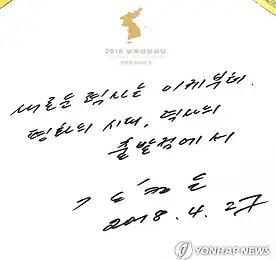 2018 남북정상회담
새로운 력사는 이제부터.
평화의 시대, 력사의
출발점에서
김정은
2018. 4. 27
YONHAP NEWS